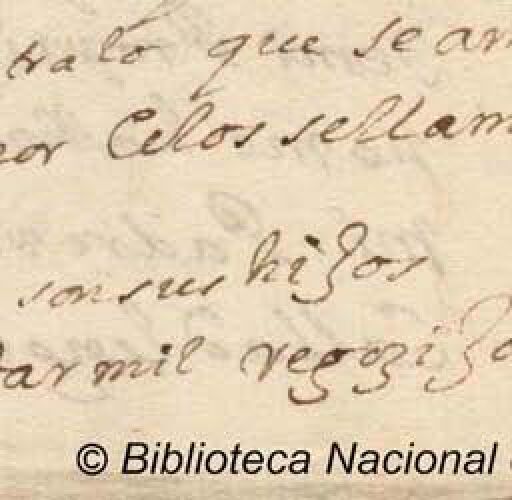 tralo que se am
eor Celos sellam
son sus hijos
dar mil regozijo
© Biblioteca Nacional